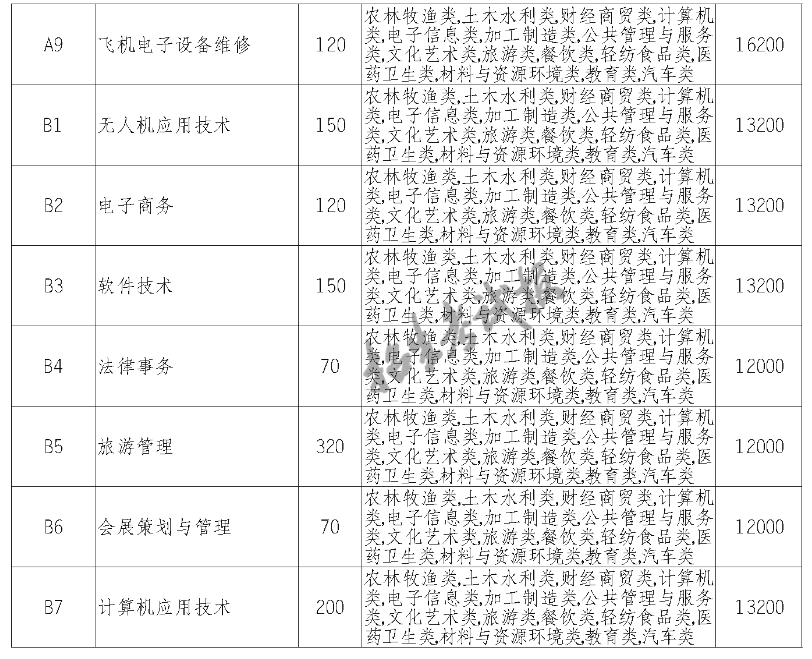 A9 飞机电子设备维修 120 农林牧渔类,土木水利类,财经商贸类,计算机 16200
类,电子信息类,加工制造类,公共管理与服务
类,文化艺术类,旅游类,餐饮类,轻纺食品类,医
药卫生类,材料与资源环境类,教育类,汽车类
B1 无人机应用技术 150 农林牧渔类,土木水利类,财经商贸类,计算机 13200
类,电子信息类,加工制造类,公共管理与服务
类,文化艺术类,旅游类,餐饮类,轻纺食品类,医
药卫生类,材料与资源环境类,教育类,汽车类
B2 电子商务 120 农林牧渔类,土木水利类,财经商贸类,计算机 13200
类,电子信息类,加工制造类,公共管理与服务
类,文化艺术类,旅游类,餐饮类,轻纺食品类,医
药卫生类,材料与资源环境类,教育类,汽车类
B3 软件技术 150 农林牧渔类,土木水利类,财经商贸类,计算机 13200
类,电子信息类,加工制造类,公共管理与服务
类,文化艺术类,旅游类,餐饮类,轻纺食品类,医
药卫生类,材料与资源环境类,教育类,汽车类
B4 法律事务 70 农林牧渔类,土木水利类,财经商贸类,计算机 12000
类,电子信息类,加工制造类,公共管理与服务
类,文化艺术类,旅游类,餐饮类,轻纺食品类,医
药卫生类,材料与资源环境类,教育类,汽车类
B5 旅游管理 320 农林牧渔类,土木水利类,财经商贸类,计算机 12000
类,电子信息类,加工制造类,公共管理与服务
类,文化艺术类,旅游类,餐饮类,轻纺食品类,医
药卫生类,材料与资源环境类,教育类,汽车类
B6 会展策划与管理 70 农林牧渔类,土木水利类,财经商贸类,计算机 12000
类,电子信息类,加工制造类,公共管理与服务
类,文化艺术类,旅游类,餐饮类,轻纺食品类,医
药卫生类,材料与资源环境类,教育类,汽车类
B7 计算机应用技术 200 农林牧渔类,土木水利类,财经商贸类,计算机 13200
类,电子信息类,加工制造类,公共管理与服务
类,文化艺术类,旅游类,餐饮类,轻纺食品类,医
药卫生类,材料与资源环境类,教育类,汽车类